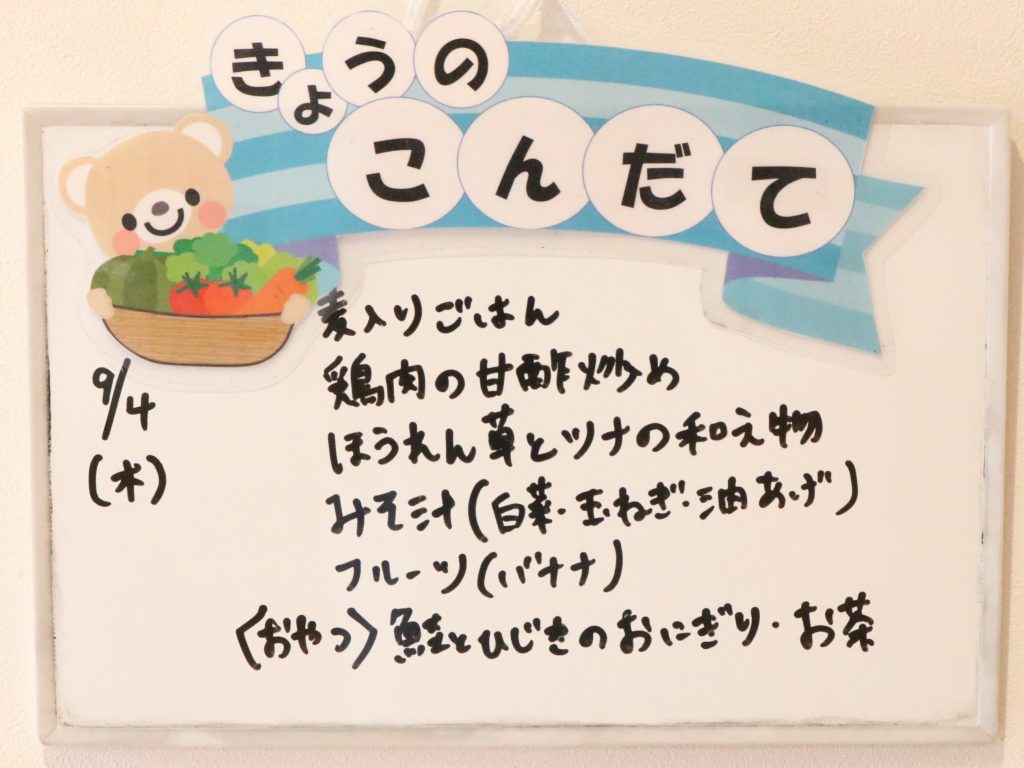 きょうの
こんだて
麦入りごはん
鶏肉の甘酢炒め
9/4
ほうれん草とツナの和え物
(木)
みそ汁(白菜・玉ねぎ・油あげ)
フルーツ(バナナ)
〈おやつ〉鮭とひじきのおにぎり・お茶